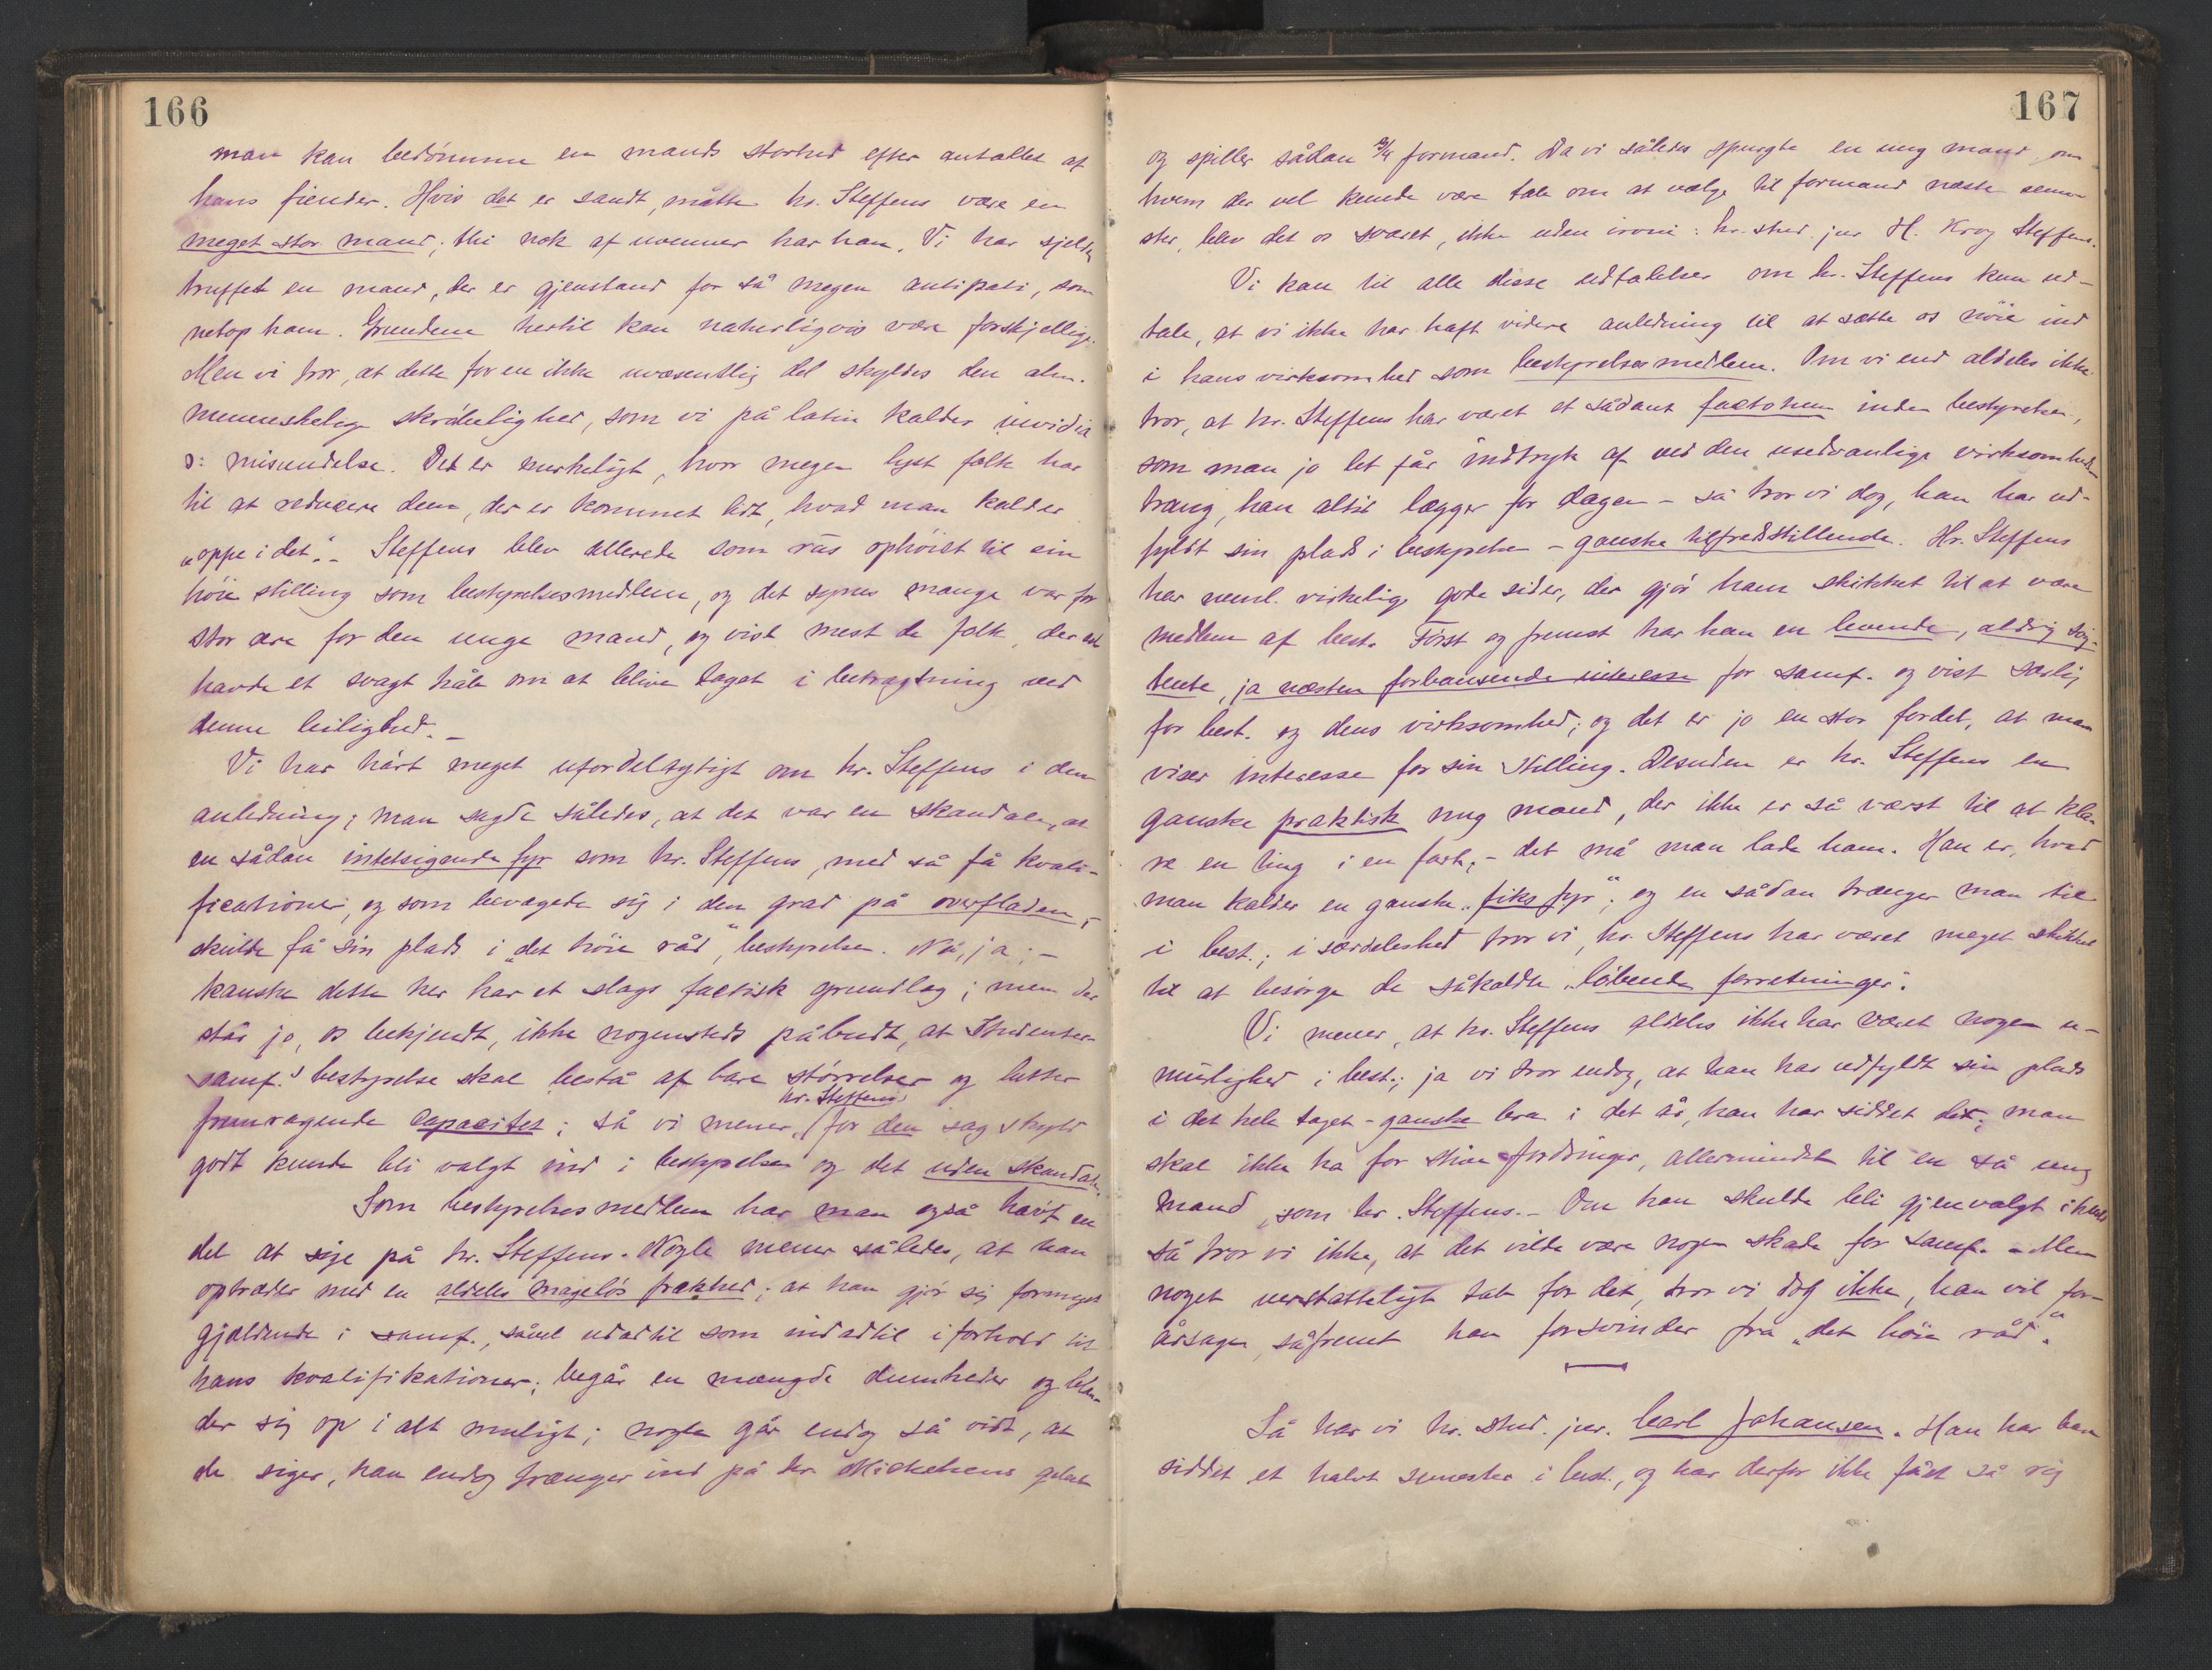 166
man kan bedømme en mands storhed efter antallet af
hans fiender. Hvis det er sandt, måtte hr. Steffens være en
meget stor mand; thi nok af uvenner har han. Vi har sjelden
truffet en mand, der er gjenstand for så megen antipati, som
netop ham. Grundene hertil kan naturligvis være forskjellige.
Men vi tror, at dette for en ikke uvæsentlig del skyldes den alm.
menneskelige skrøbelighed, som vi på latin kalder invidia
ɔ: misundelse. Det er merkeligt, hvor megen lyst folk har
til at reducere dem, der er kommet lidt, hvad man kalder
„oppe i det“. – Steffens blev allerede som rus ophøiet til sin
høie stilling som bestyrelsesmedlem, og det synes mange var for
stor ære for den unge mand, og vist mest de folk, der
havde et svagt håb om at blive taget i betragtning ved
denne leilighed. –
Vi har hørt meget ufordelagtigt om hr. Steffens i den
anledning; man sagde således, at det var en skandale, at
en sådan intetsigende fyr som hr. Steffens, med så få kvali-
ficationer, og som bevægede sig i den grad på overfladen, –
skulde få sin plads i „det høie råd“, bestyrelsen. Nå, ja; –
kanske dette her har et slags factisk grundlag; men der
står jo, os bekjendt, ikke nogensteds påbudt, at Studenter-
samf.s bestyrelse skal bestå af bare størrelser og lutter
fremragende capacitet; så vi mener, hr. Steffens for den sag skyld
godt kunde bli valgt ind i bestyrelsen og det uden skandale.
Som bestyrelsesmedlem har man også havt en
del at sige på hr. Steffens. Nogle mener således, at han
optræder med en aldeles mageløs frækhed; at han gjør sig formeget
gjældende i samf., såvel udadtil som indadtil i forhold til
hans kvalifikationer; begår en mængde dumheder og blan-
der sig op i alt muligt; nogle går endog så vidt, at
de siger, han endog trænger ind på hr. Mickelsens gebet
167
og spiller sådan 3/4 formand. Da vi således spurgte en ung mand, om
hvem der vel kunde være tale om at vælge til formand næste seme-
ster, blev det os svaret, ikke uden ironi: hr. stud. jur H. Krog Steffens.
Vi kan til alle disse udtalelser om hr. Steffens kun ud-
tale, at vi ikke har haft videre anledning til at sætte os nøie ind
i hans virksomhed som bestyrelsesmedlem. Om vi end aldeles ikke
tror, at hr. Steffens har været et sådant factotum inden bestyrelsen,
som man jo let får indtryk af ved den usedvanlige virksomheds-
trang, han altid lægger for dagen – så tror vi dog, han har ud-
fyldt sin plads i bestyrelsen – ganske tilfredsstillende. Hr. Steffens
har neml. virkelig gode sider, der gjør ham skikket til at være
medlem af best. Først og fremst har han en levende, aldrig svig-
tende, ja næsten forbausende interesse for samf. og vist særlig
for best. og dens virksomhed; og det er jo en stor fordel, at man
viser interesse for sin stilling. Desuden er hr. Steffens en
ganske praktisk ung mand, der ikke er så værst til at kla-
re en ting i en fart; – det må man lade ham. Han er, hvad
man kalder en ganske „fiks fyr“; og en sådan trænger man til
i best.; i særdeleshed tror vi, hr. Steffens har været meget skikket
til at besørge de såkaldte „løbende forretninger“.
Vi mener, at hr. Steffens aldeles ikke har været nogen u-
mulighed i best.; ja vi tror endog, at han har udfyldt sin plads
i det hele taget – ganske bra i det år, han har siddet der; man
skal ikke ha for store fordringer, allermindst til en så ung
mand, som hr. Steffens. – Om han skulde bli gjenvalgt
så tror vi ikke, at det vilde være nogen skade for samf. – Men
noget uerstatteligt tab for det, tror vi dog ikke, han vil for-
årsage, såfremt han forsvinder fra „det høie råd“.
Så har vi hr. stud. jur. Carl Johansen. Han har bare
siddet et halvt semester i best., og har derfor ikke fået så rig